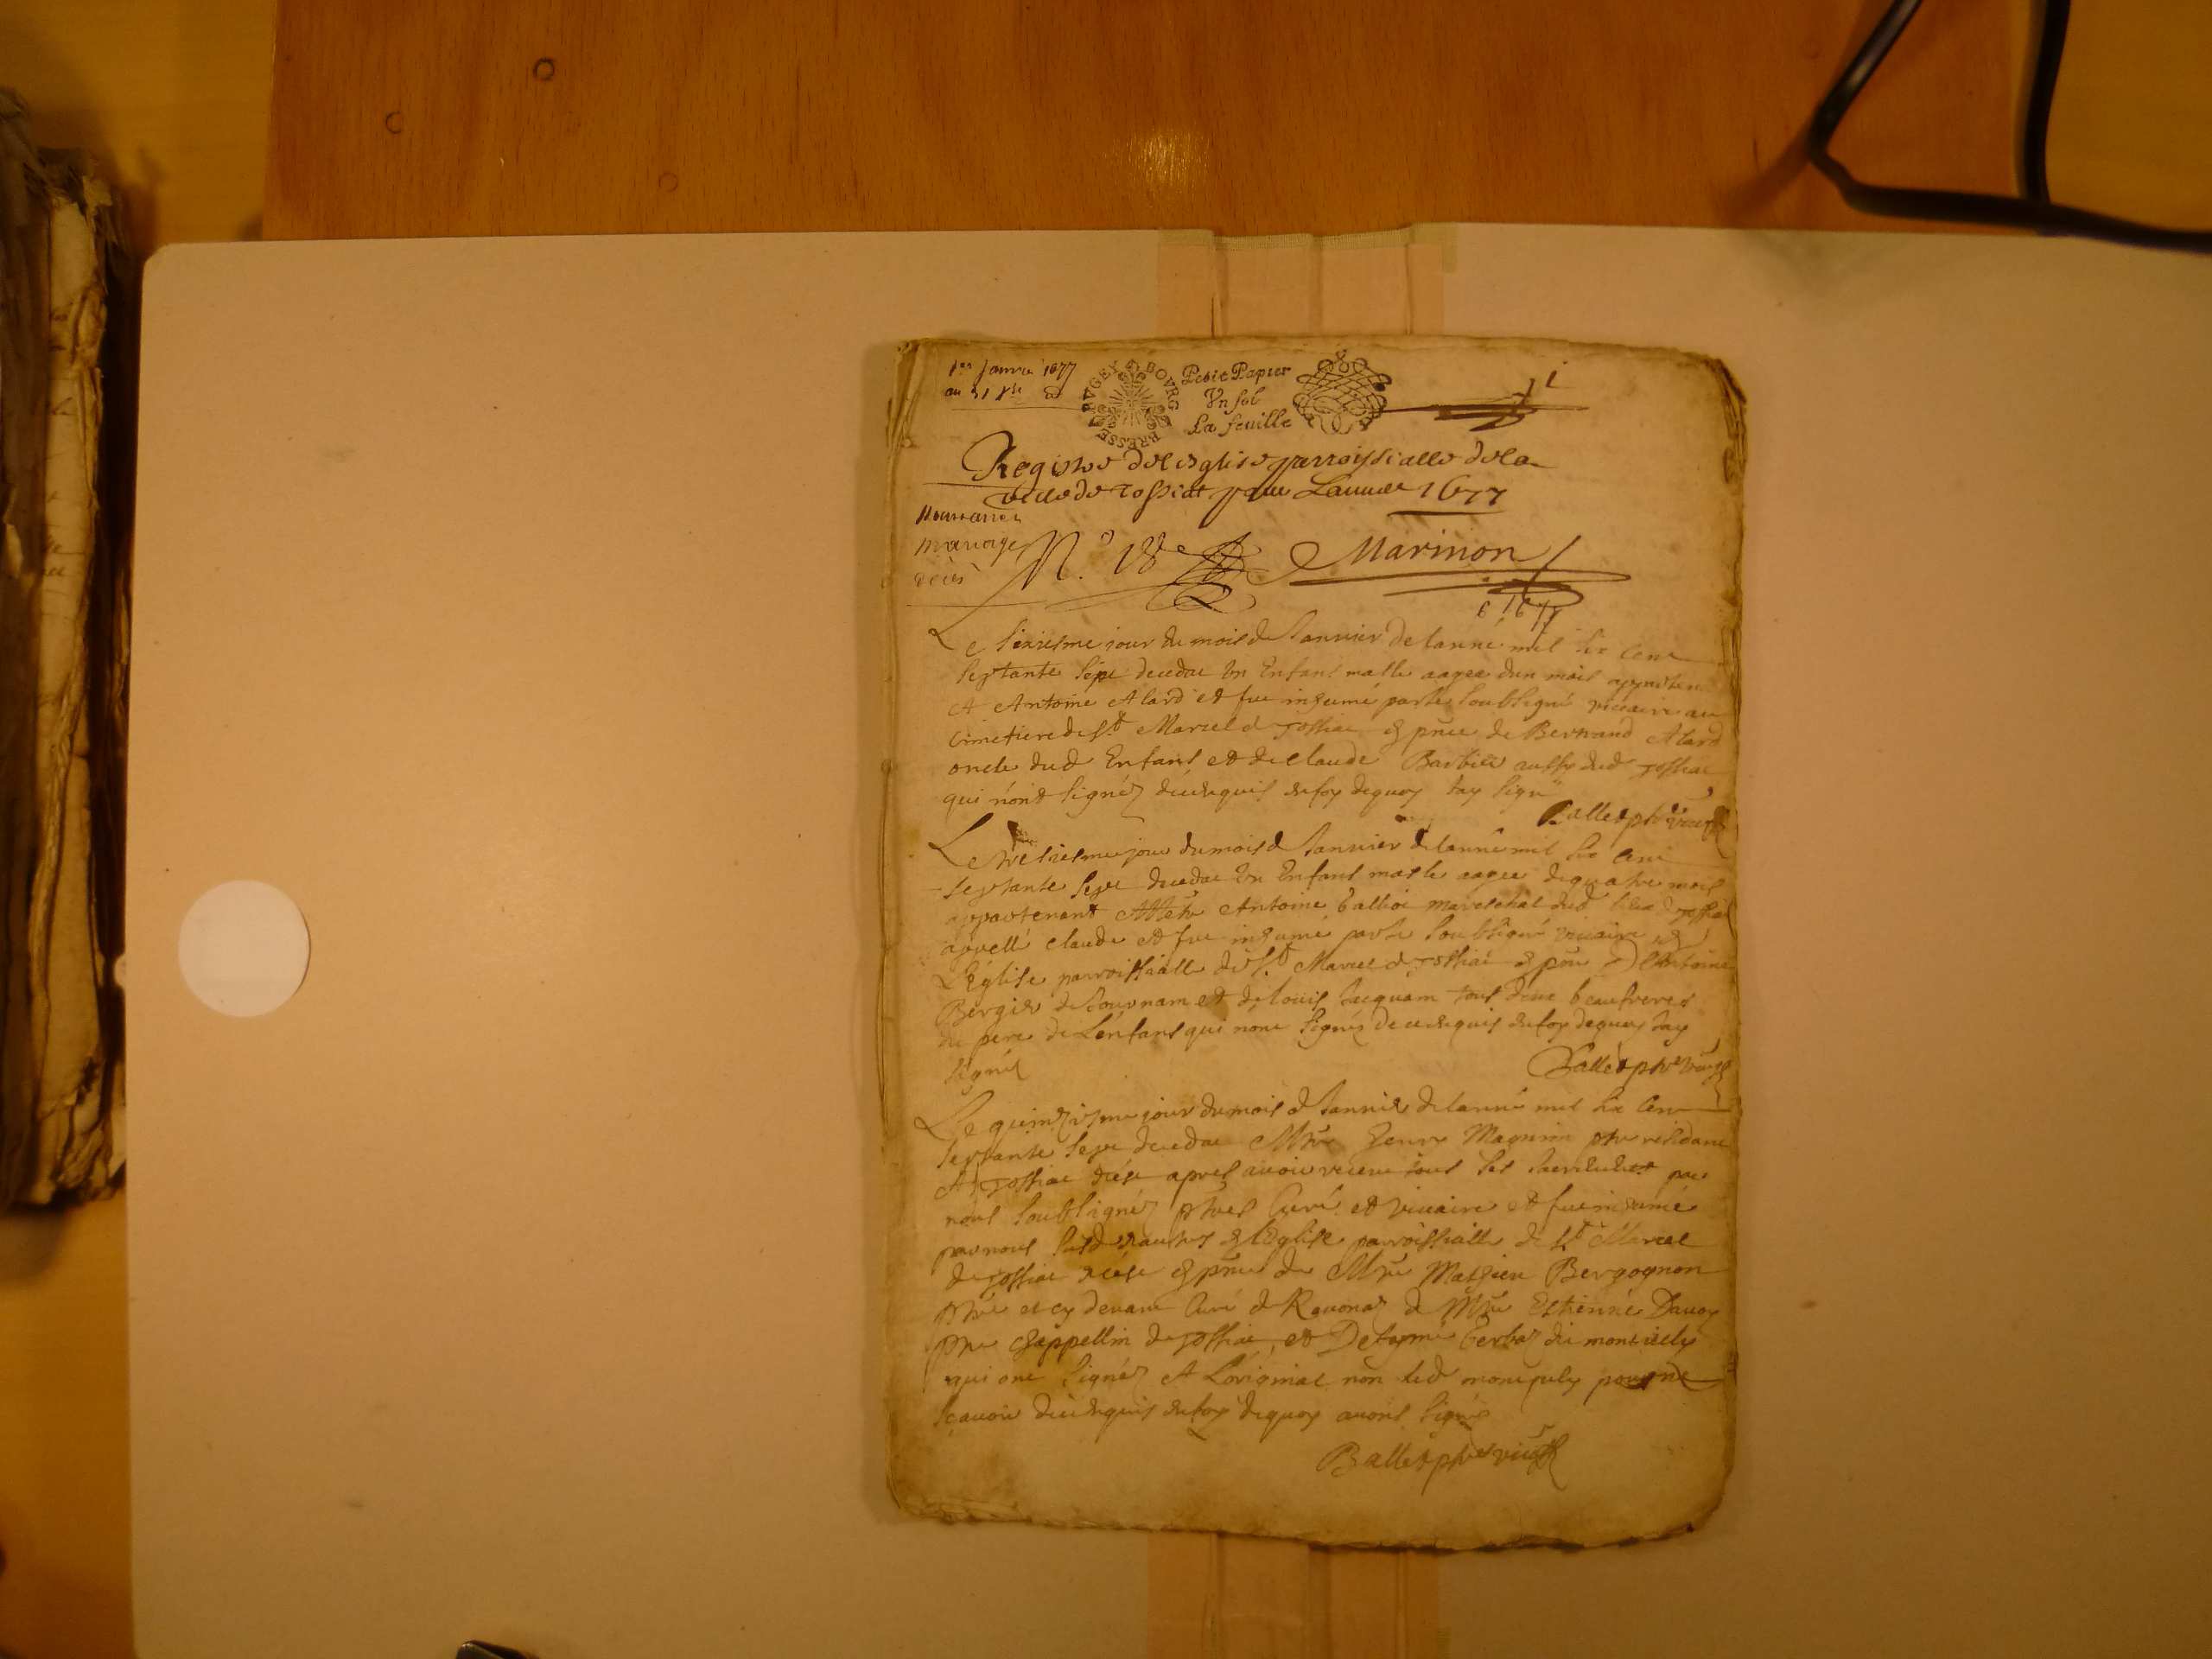 1er Janvier 1677
au 31 Xbre d°
BVGEY BOVRG BRESSE
Petit Papier
Vn sol
La feuille
1
Registre de l'esglise parroissialle de la
ville de Tossiat pour Lannee 1677
Naissances
mariages
décès
N.° 18
Marinon
6 1677
Le sixiesme jour du mois de Januier de lanné mil six cent
septante sept deceda vn Enfant masle aagee dun mois appartena
A Antoine Alard et fut inhumé par le soubsigné vicaire au
cimetiere de st Marcel de Tossiac en pnce de Bernand Alard
oncle dud Enfant et de claude Barbier aussy dud Tossiac
qui n'ont signéz de ce requis en foy de quoy Jay signé
Ballet ptre vic
Le tresiesme jour du mois de Januier de lanné mil six cent
septante sept deceda vn Enfant masle aagee de quatre mois
appartenant A Mestre Antoine balliot mareschal dud lieu de Tossiac
appellé claude et fut inhumé par le soubsigné vicaire en
L'église parroissialle de st Marcel de Tossiac en pnce d'Antoine
Bergier de Journans et de louis Jacquam tous deux beaufreres
du pere de L'enfant qui n'ont signéz de ce requis en foy de quoy Jay
signé
Ballet ptre vic
Le quinziesme jour du mois de Januier de lanné mil six cent
septante sept deceda Mre henry Magnin ptre residant
A Tossiac apres auoir receu tous les sacrements par
nous soubsignéz ptres Curé et vicaire et fut inhumé
par nous en L'Eglise parroissialle de st Marcel
de Tossiac en pnce de Mre Mathieu Bergognon
ptre et cy deuant Curé de Reuonaz de Mre Estienne Dauoy
ptre chappellin de Tossiac, et De
qui ont signéz A L'original non led pour ne
sçauoir de ce requis en foy de quoy auons signé
Ballet ptre vic